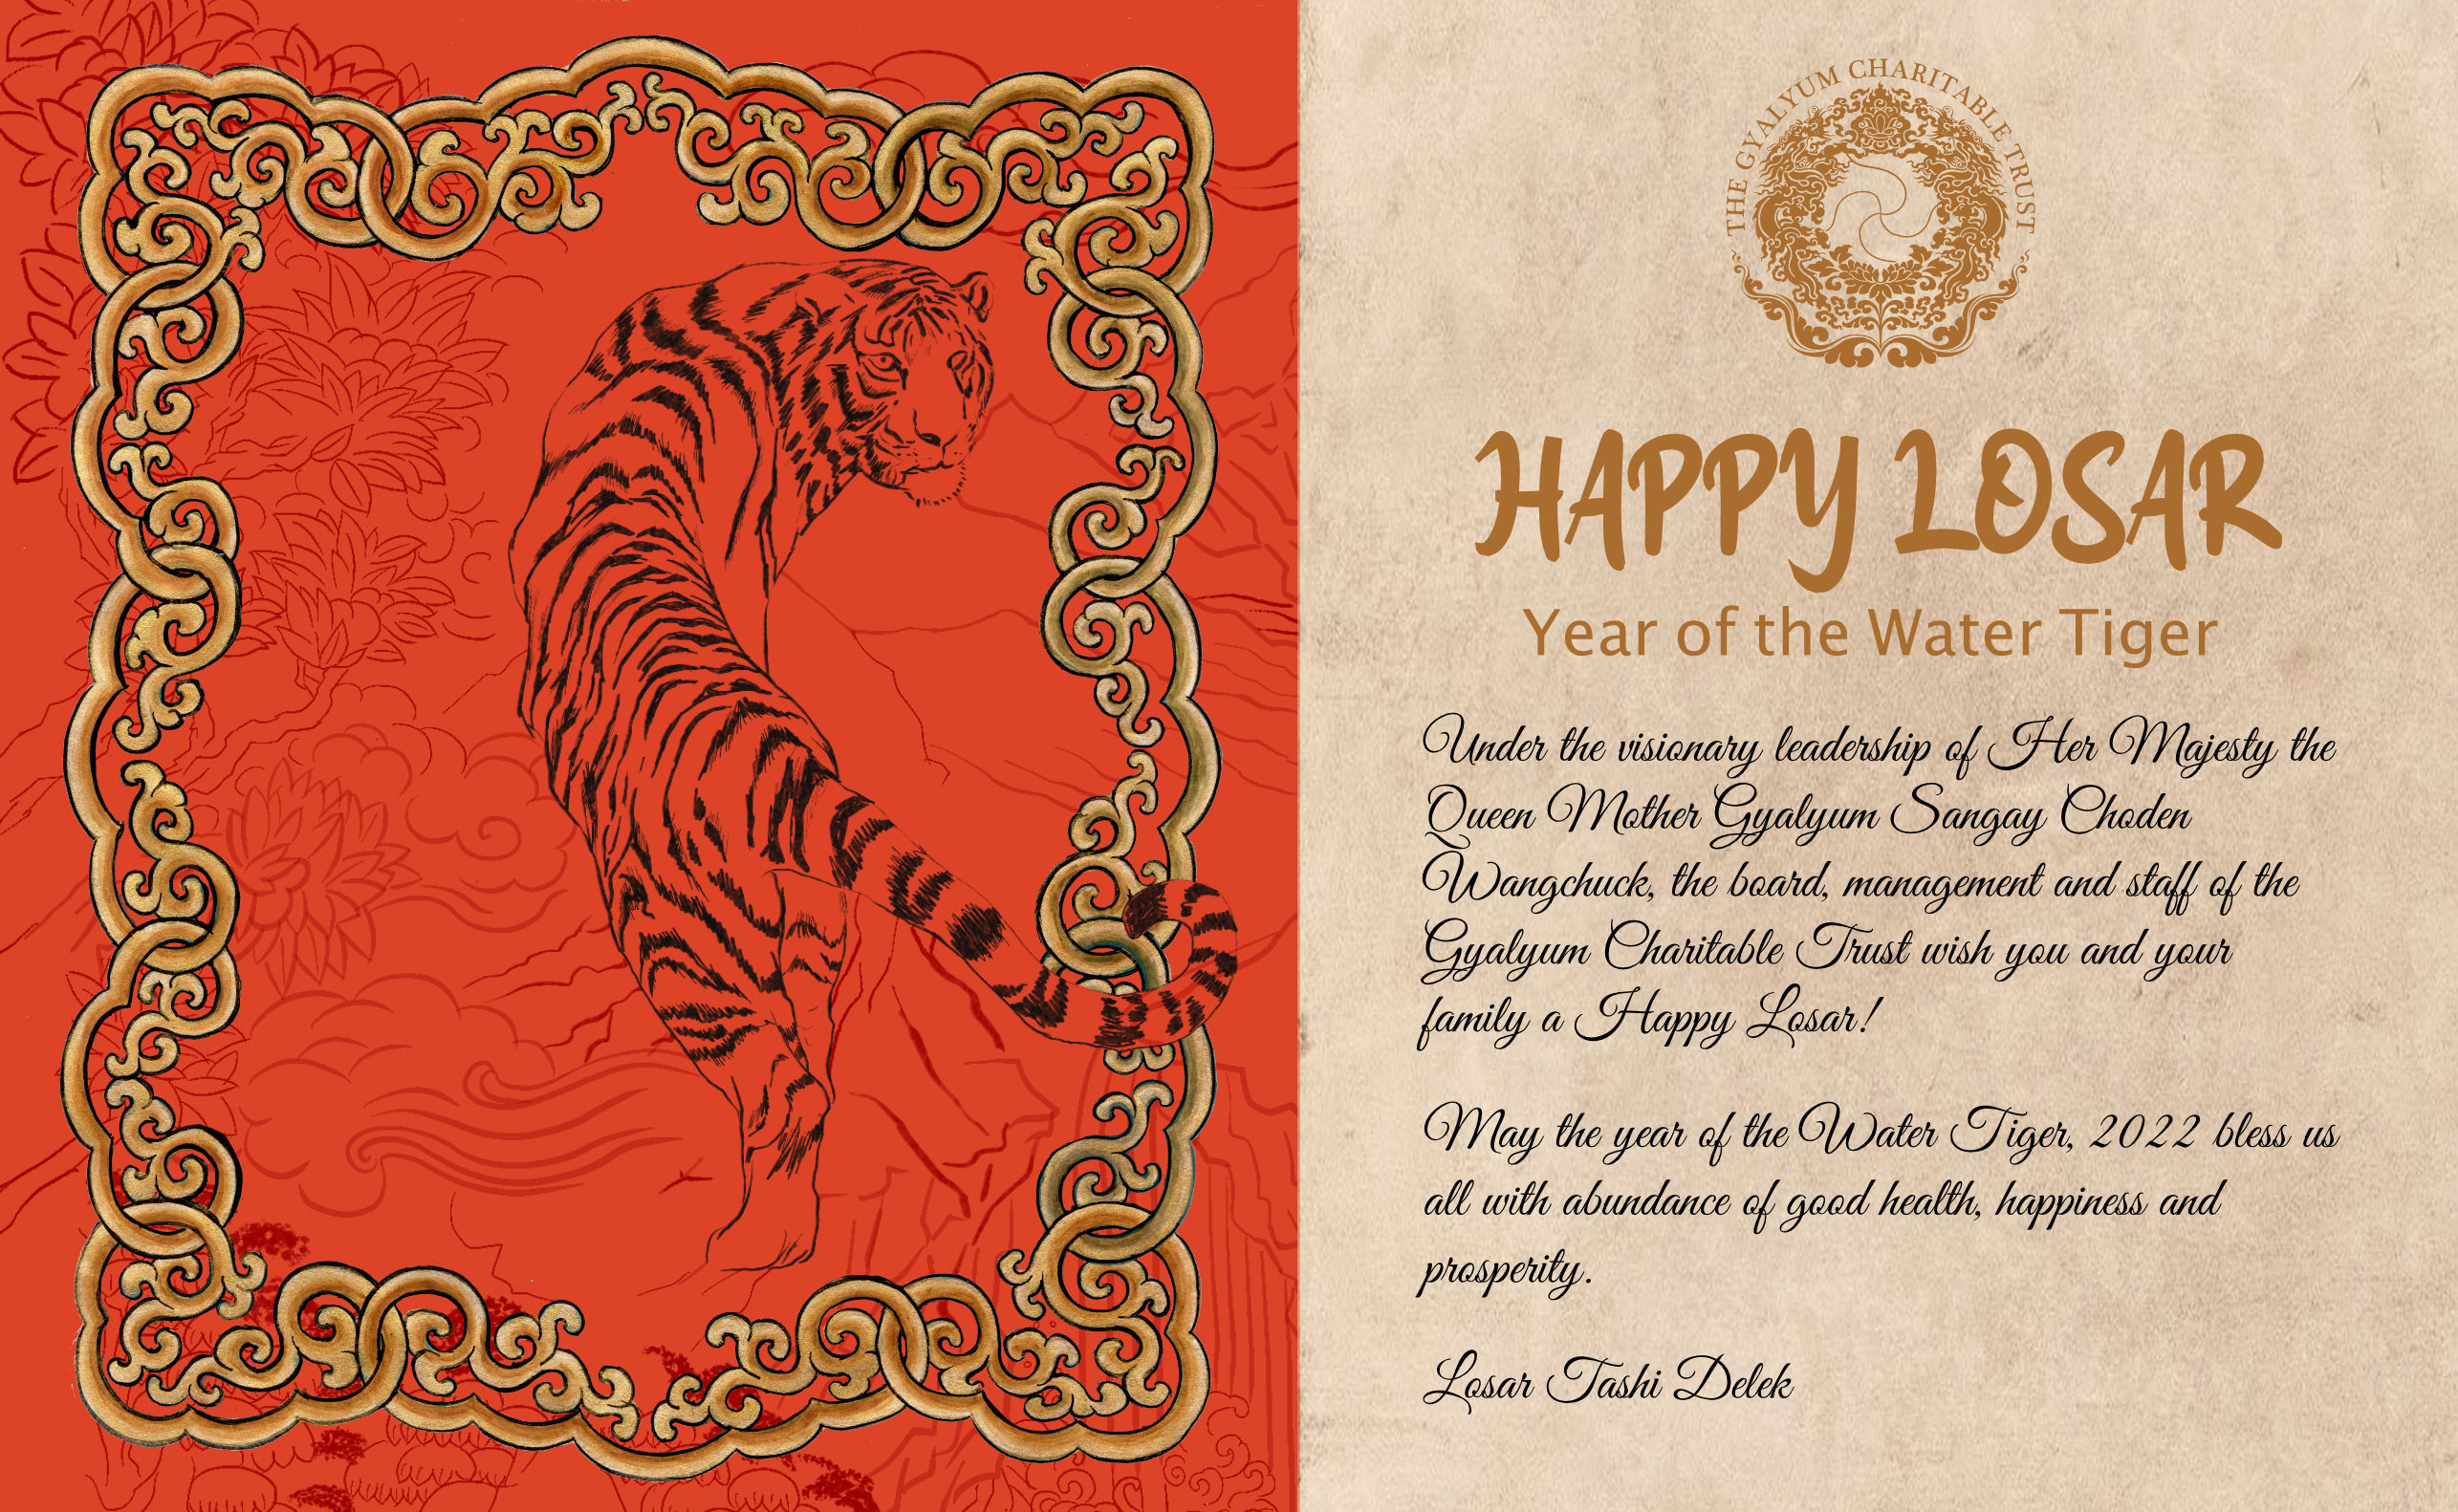 THE GYALYUM CHARITABLE TRUST
HAPPY LOSAR
Year of the Water Tiger
Under the visionary leadership of Her Majesty the
Queen Mother Gyalyum Sangay Choden
Wangchuck, the board, management and staff of the
Gyalyum Charitable Trust wish you and your
family a Happy Losar!
May the year of the Water Tiger, 2022 bless us
all with abundance of good health, happiness and
prosperity.
Losar Tashi Delek